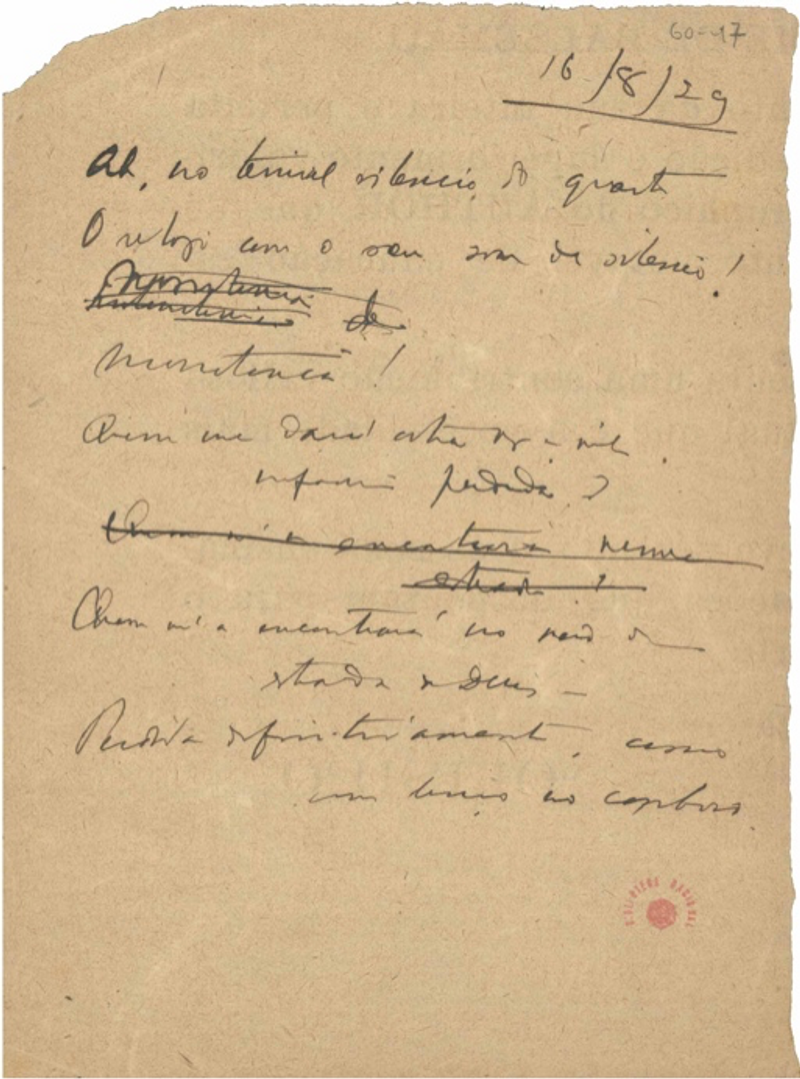 60-17
16/8/29
Ah, no terrivel silencio do quarto
O relogio com o seu som de silencio!
Monotonia
de
Monotonia!
Quem me dará outra vez a minha
infancia perdida?
Quem m'a encontrará nessa
estrada?
Quem m'a encontrará no meio da
estrada de Deus —
Perdida definitivamente, como
um lenço no comboio.
BIBLIOTECA NACIONAL